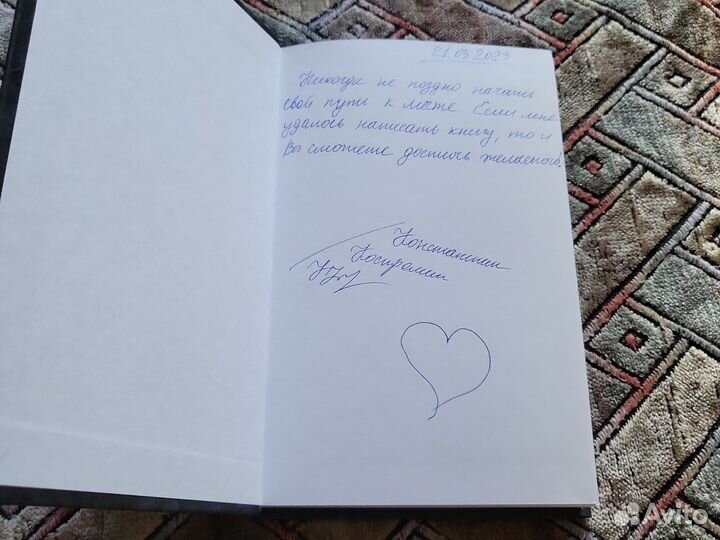 21 03 2023
Никогда не поздно начать
свой путь к мечте Если мне
удалось написать книгу, то и
Вы сможете достичь желаемого!
Константин
Костромин
Avito